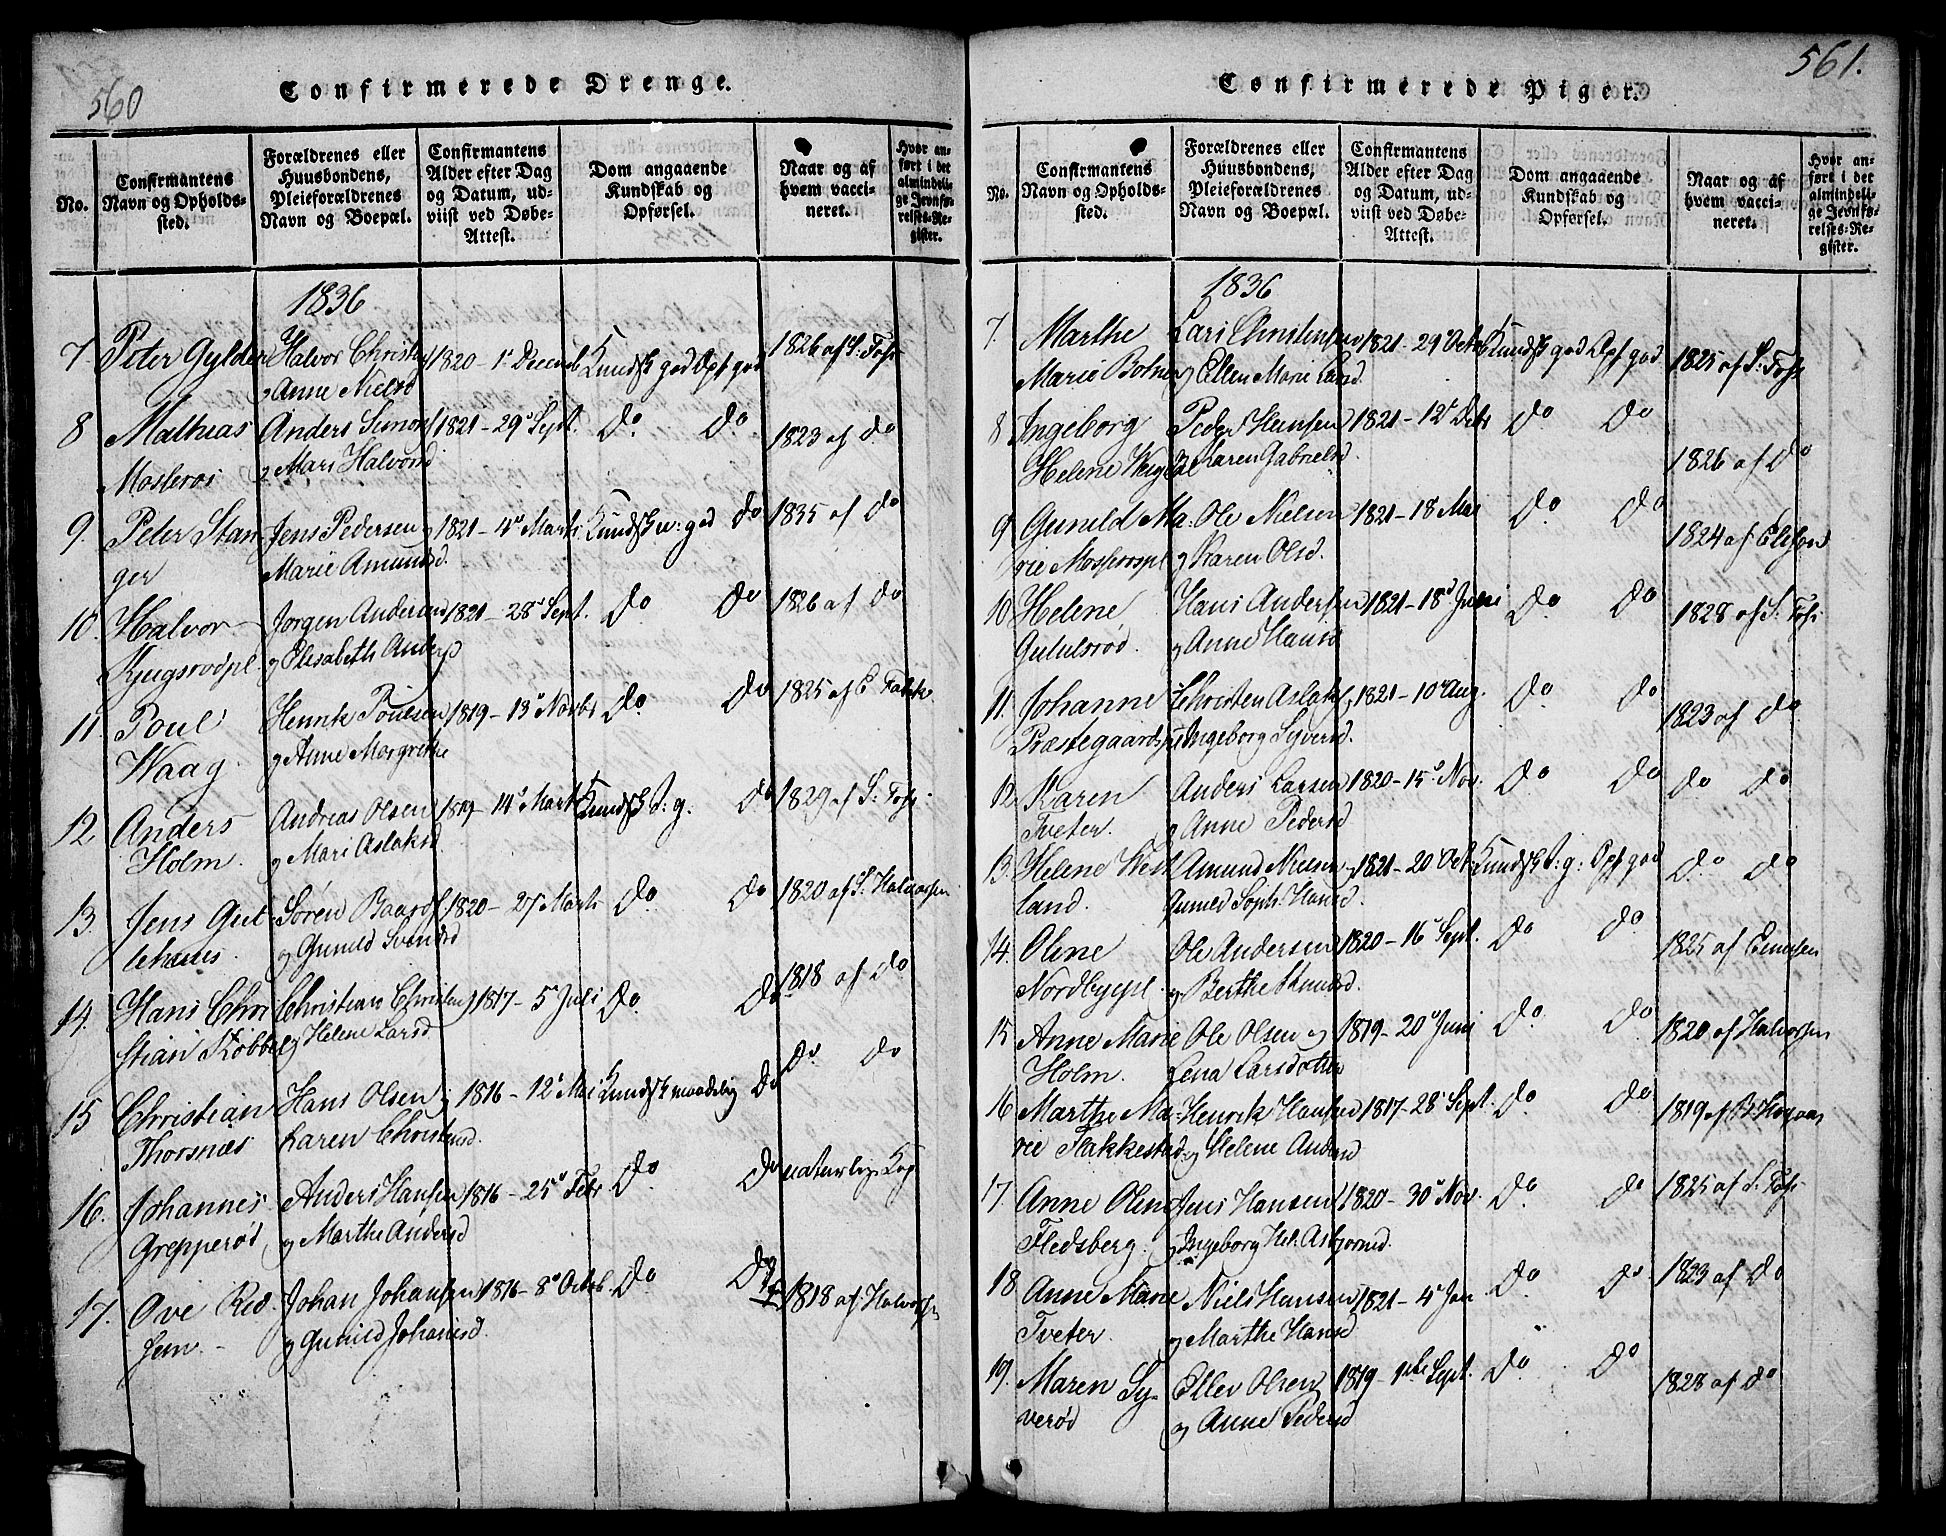 560
Confirmerede Drenge.
No.
Confirmantens Navn og Opholds-sted.
Forældrenes eller Huusbondens, Pleieforældrenes Navn og Boepæl.
Confirmantens Alder efter Dag og Datum, ud-viist ved Døbe-Attest.
Dom angaaende Kundskab og Opførsel.
Naar og af hvem vacci-neret.
Hvor an-ført i det almindeli-ge Jevnfø-relses-Re-gister.
1836
7 Peter Gylder Halvor Christ 1820 - 1 Decemb Kundsk god Opf god 1826 af S: Foss
og Anne Nielsd
8 Mathias Anders Simons 1821 - 29 Sept. Do Do 1823 af do
Mosserøs og Mari Halvorsd
9. Peter Stan Jens Pedersen 1821 - 4 Marts Kundsk n: god Do 1835 af do
ger Marie Amundsd.
10. Halvor Jørgen Andersen 1821 - 28 Sept. Do Do 1826 af do
og Elisabeth Anders
11. Poul Henrik Poulsen 1819 - 13 Novbr Do Do 1825 af E
Waag. og Anne Margrethe
12 Anders Andreas Olsen 1819 - 14 Mart Kundsk T. g. Do 1829 af S: Foss
Holm. og Mari Aslaksd
13. Jens Gut Søren Baards 1820 - 27 Marts Do Do 1820 af S. Halvorsen
og Gunild Svendsd
14. Hans Chri Christian Christens 1817 - 5 Juli Do Do 1818 af do
stian Købbel og Helene Larsd
15 Christian Hans Olsen 1816 - 12 Mai Kundsk maadelig Do Do do
Thorsnæs Karen Christensd.
16. Johannes Anders Hansen 1816 - 25 Febr Do Do naturlig Kop
Grepperød og Marthe Andersd
17. Ove Rid Johan Johansen 1816 - 8 Octob. Do Do 1818 af Halvorsen
sem - og Gunild Johannesd.
561.
Confirmerede Piger.
No.
Confirmantens Navn og Opholds-sted.
Forældrenes eller Huusbondens, Pleieforældrenes Navn og Boepæl.
Confirmantens Alder efter Dag og Datum, ud-viist ved Døbe-Attest.
Dom angaaende Kundskab og Opførsel.
Naar og af hvem vacci-neret.
Hvor an-ført i det almindeli-ge Jevnfø-relses-Re-gister.
1836
7. Marthe Lars Christensen 1821 - 29 Octb Kundsk god Opf god 1825 af S: Foss
Marie og Ellen Marie
8 Ingeborg Peder Hansen 1821 - 12 Do Do 1826 af do
Helene og Karen Gabrielsd
9 Gunild Ma: Ole Nielsen 1821 - 18 Mai Do Do 1824 af
rie og Karen Olsd.
10. Helene Hans Andersen 1821 - 18 Juni Do Do 1828 af S. Foss
Gululsrød. og Anne Hansd
11. Johanne Christen Aslaks 1821 - 10 Aug. Do Do 1823 af do
Præstegaardspl Ingeborg Syversd.
12. Karen Anders Larsen 1820 - 15 Nov. Do Do do do
Tveter. og Anne Pedersd
13. Helene West Amund Nielsen 1821 - 20 Oct. Kundsk T: g. Opf god do do
land. Gunild Soph. Hansd.
14. Oline Ole Andersen 1820 - 16 Sept. Do Do 1825 af
Nordbyepl. og Berthe
15. Anne Marie Ole Olsen og 1819 - 20 Juni Do Do 1820 af Halvorsen
Holm. Lena Larsdatter
16 Marthe Ma- Henrik Hansen 1817 - 28 Sept. Do Do 1819 af
rie Flakkestad og Helene Andersd
17. Anne Oline Jens Hansen 1820 - 30 Nov. Do Do 1825 af S. Foss
Fledsberg. og Ingeborg Hel. Asbjørnsd.
18 Anne Marie Niels Hansen 1821 - 4 Jan Do Do 1823 af do
Tveter. og Marthe Hansd
19. Maren Sy- Ellev Olsen 1819 - 1 Sept. Do Do 1828 af do
verød og Anne Pedersd